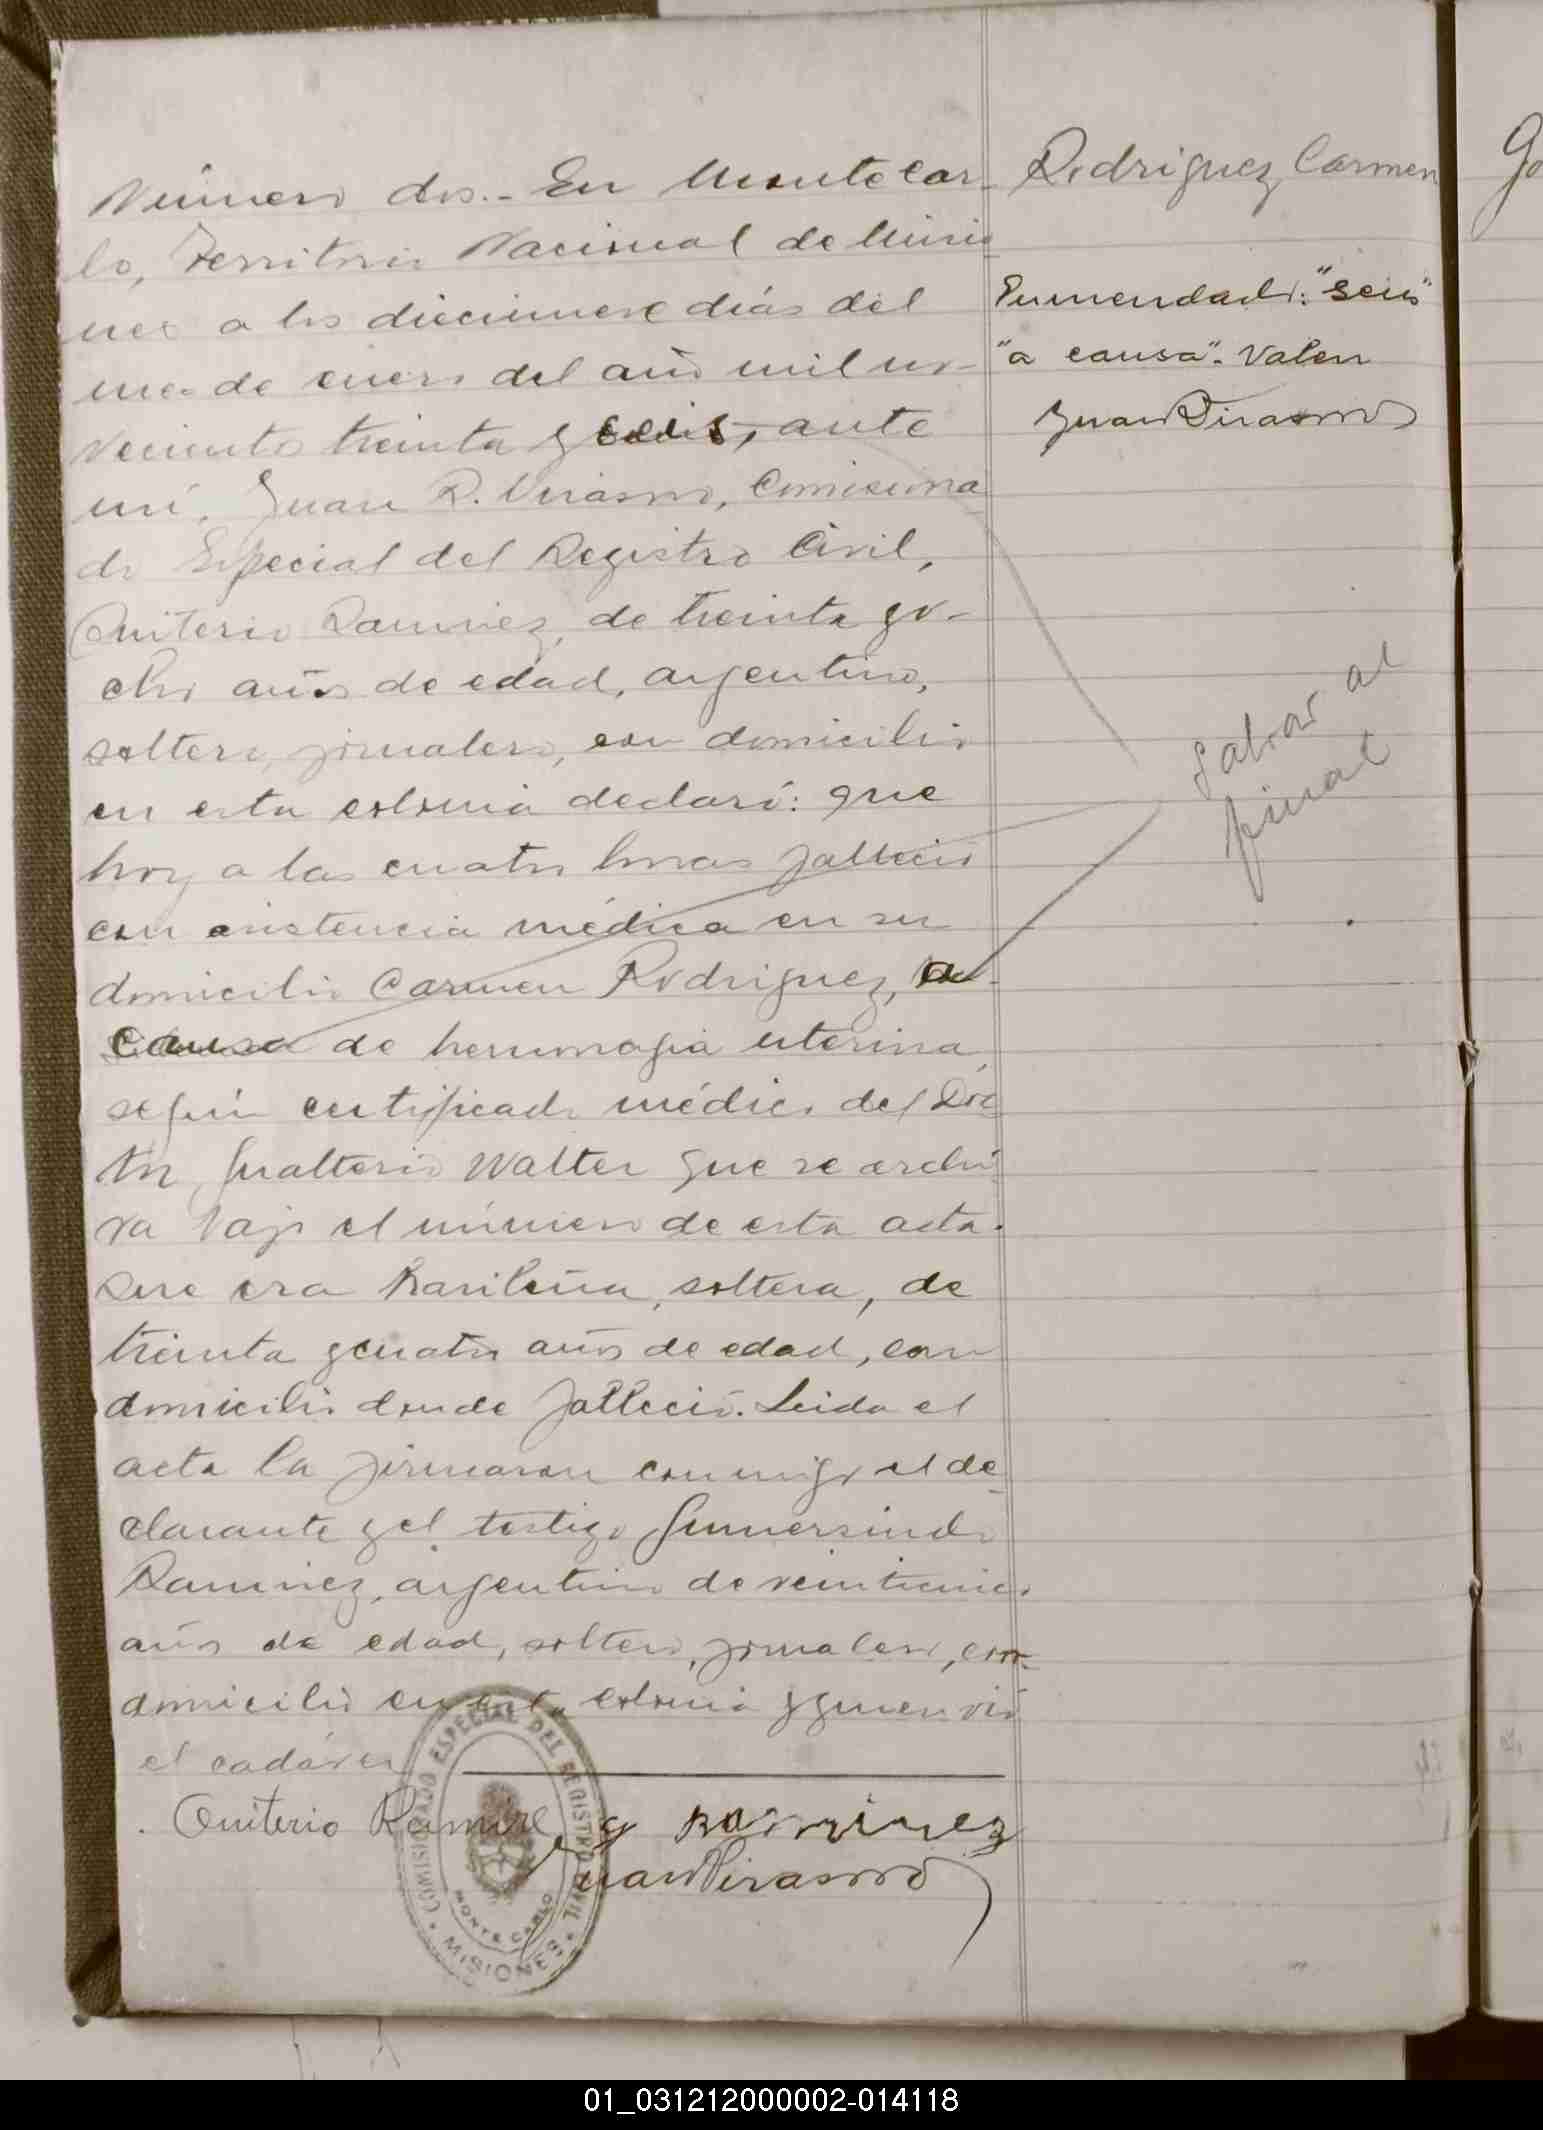 Número dos.- En Montecar-
lo, Territorio Nacional de Misio
nes a los diecinueve días del
mes de enero del año mil no-
vecientos treinta y seis, ante
mí, Juan R. Virasoro, Comisiona
do Especial del Registro Civil,
Quiterio Ramirez, de treinta y o-
cho años de edad, argentino,
soltero, jornalero, con domicilio
en esta colonia declaró: que
hoy a las cuatro horas falleció
con asistencia médica en su
domicilio Carmen Rodriguez, a
causa de hemorragia uterina,
según certificado médico del Doc
tor, Gualterio Walter que se archi
va bajo el número de esta acta.
Que era brasileña, soltera, de
treinta y cuatro años de edad, con
domicilio donde falleció. Leida el
acta la firmaron conmigo el de
clarante y el testigo Gumersindo
Ramirez, argentino de veinticinco
años de edad, soltero, jornalero, con
domicilio en esta colonia y quien vió
el cadáver
Quiterio Ramirez g ramirez
Juan R Virasoro
COMISIONADO ESPECIAL DEL REGISTRO CIVIL
MONTE CARLO
MISIONES
Rodriguez Carmen
Enmendado: "seis"
"a causa". Valen
Juan R Virasoro
Salvar al
final
01_031212000002-014118